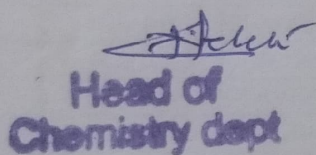 Head of
Chemistry dept